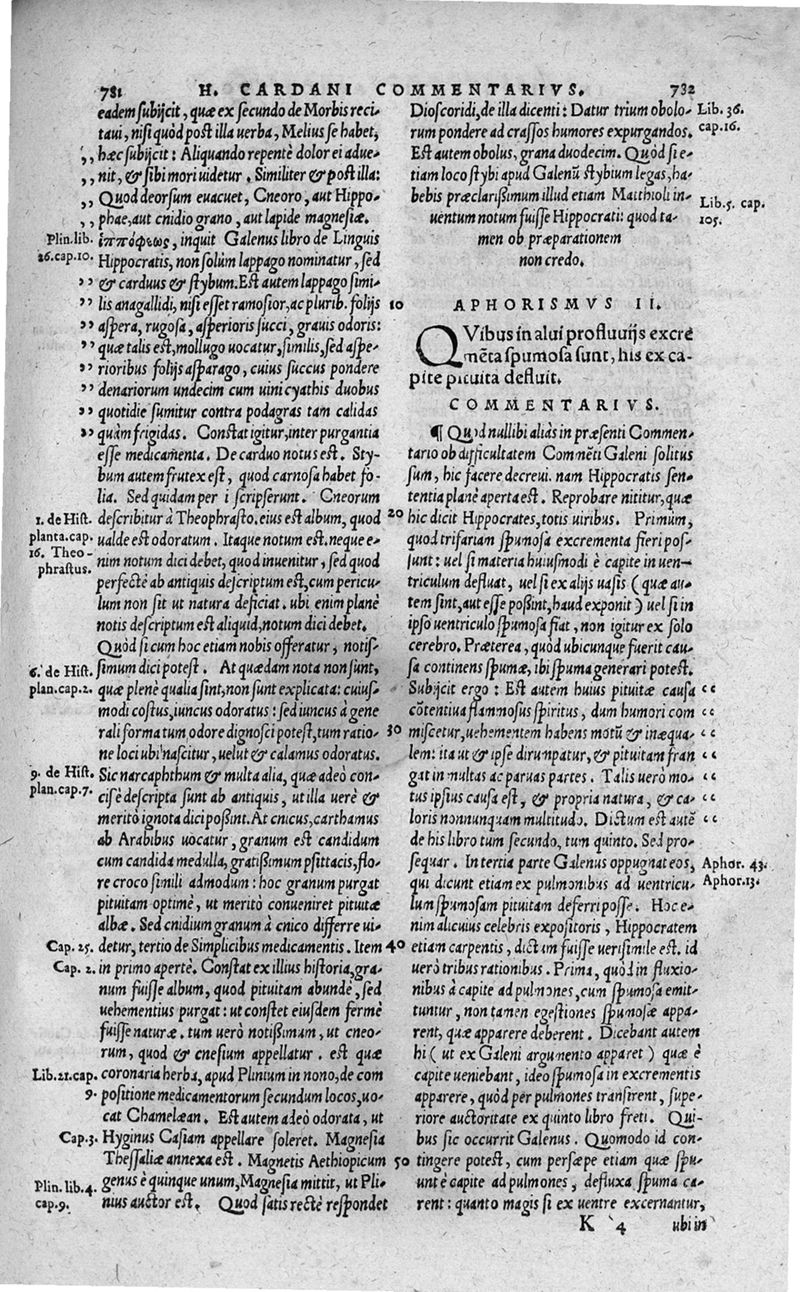 731 H. CARDANI COMMENTARIVS. 732
eadem subijcit, quæ ex secundo de Morbis reci-
taui, nisi quòd post illa uerba, Melius se habet,
,, hæc subijcit: Aliquando repentè dolor ei adue-
,, nit, & sibi mori uidetur. Similiter & post illa:
,, Quod deorsum euacuet, Cneoro, aut Hippo-
,, phae, aut cnidio grano, aut lapide magnesiæ.
Plin. lib. 26. cap. 10.
ἱππόφεως, inquit Galenus libro de Linguis
Hippocratis, non solùm lappago nominatur, sed
,, & carduus & stybum. Est autem lappago simi-
,, lis anagallidi, nisi esset ramosior, ac plurib. folijs
,, aspera, rugosa, asperioris succi, grauis odoris:
,, quæ talis est, mollugo uocatur, similis, sed aspe-
,, rioribus folijs asparago, cuius succus pondere
,, denariorum undecim cum uini cyathis duobus
,, quotidie sumitur contra podagras tam calidas
,, quàm frigidas. Constat igitur, inter purgantia
esse medicamenta. De carduo notus est. Sty-
bum autem frutex est, quod carnosa habet fo-
lia. Sed quidam per i scripserunt. Cneorum
1. de Hist. planta. cap. 16. Theo-phrastus.
describitur à Theophrasto. eius est album, quod
ualde est odoratum. Itaque notum est. neque e-
nim notum dici debet, quod inuenitur, sed quod
perfectè ab antiquis descriptum est, cum pericu-
lum non sit ut natura deficiat. ubi enim planè
notis descriptum est aliquid, notum dici debet.
Quod si cum hoc etiam nobis offeratur, notis-
6. de Hist. plan. cap. 2.
simum dici potest. At quædam nota non sunt,
quæ plenè qualia sint, non sunt explicata: cuius-
modi costus, iuncus odoratus: sed iuncus à gene
rali forma tum odore dignosci potest, tum ratio-
ne loci ubi nascitur, uelut & calamus odoratus.
9. de Hist. plan. cap. 7.
Sic narcaphthum & multa alia, quæ adeò con-
cisè descripta sunt ab antiquis, ut illa uerè &
meritò ignota dici possint. At cnicus, carthamus
ab Arabibus uocatur, granum est candidum
cum candida medulla, gratissimum psittacis, flo-
re croco simili admodum: hoc granum purgat
pituitam optimè, ut meritò conueniret pituitæ
albæ. Sed cnidium granum à cnico differre ui-
Cap. 25.
detur, tertio de Simplicibus medicamentis. Item
Cap. 2.
in primo apertè. Constat ex illius historia, gra-
num fuisse album, quod pituitam abundè, sed
uehementius purgat: ut constet eiusdem fermè
fuisse naturæ. tum uerò notissimum, ut cneo-
rum, quod & cnesium appellatur. est quæ
Lib. 21. cap. 9.
coronaria herba, apud Plinium in nono, de com
positione medicamentorum secundum locos, uo-
cat Chamelæan. Est autem adeò odorata, ut
Cap. 3.
Hyginus Casiam appellare soleret. Magnesia
Thessaliæ annexa est. Magnetis Aethiopicum
Plin. lib. 4. cap. 9.
genus è quinque unum, Magnesia mittit, ut Pli-
nius auctor est. Quod satis rectè respondet
Dioscoridi, de illa dicenti: Datur trium obolo-
Lib. 36. cap. 16.
rum pondere ad crassos humores expurgandos.
Est autem obolus, grana duodecim. Quòd si e-
tiam loco stybi apud Galenũ stybium legas, ha-
bebis præclarissimum illud etiam Matthioli in-
Lib. 5. cap. 105.
uentum notum fuisse Hippocrati: quod ta-
men ob præparationem
non credo.
10 APHORISMVS II.
QVibus in alui profluuijs excre
mẽta spumosa sunt, his ex ca-
pite pituita defluit.
COMMENTARIVS.
¶ Quod nullibi aliàs in præsenti Commen-
tario ob difficultatem Commẽti Galeni solitus
sum, hic facere decreui. nam Hippocratis sen-
tentia planè aperta est. Reprobare nititur, quæ
20 hic dicit Hippocrates, totis uiribus. Primùm,
quod trifariam spumosa excrementa fieri pos-
sunt: uel si materia huiusmodi è capite in uen-
triculum defluat, uel si ex alijs uasis (quæ au-
tem sint, aut esse possint, haud exponit) uel si in
ipso uentriculo spumosa fiat, non igitur ex solo
cerebro. Præterea, quòd ubicunque fuerit cau-
sa continens spumæ, ibi spuma generari potest.
Subijcit ergo: Est autem huius pituitæ causa “
cõtentiua flammosus spiritus, dum humori com “
30 miscetur, uehementem habens motũ & inæqua- “
lem: ita ut & ipse dirunpatur, & pituitam fran “
gat in multas ac paruas partes. Talis uerò mo- “
tus ipsius causa est, & propria natura, & ca- “
loris nonnunquam multitudo. Dictum est autẽ “
de his libro tum secundo, tum quinto. Sed pro-
sequar. In tertia parte Galenus oppugnat eos,
Aphor. 43. Aphor. 13.
qui dicunt etiam ex pulmonibus ad uentricu-
lum spumosam pituitam deferri posse. Hoc e-
nim alicuius celebris expositoris, Hippocratem
40 etiam carpentis, dictum fuisse uerisimile est. id
uerò tribus rationibus. Prima, quòd in fluxio-
nibus à capite ad pulmones, cum spumosa emit-
tuntur, non tamen egestiones spumosæ appa-
rent, quæ apparere deberent. Dicebant autem
hi (ut ex Galeni argumento apparet) quæ è
capite ueniebant, ideo spumosa in excrementis
apparere, quòd per pulmones transirent, supe-
riore auctoritate ex quinto libro freti. Qui-
bus sic occurrit Galenus. Quomodo id con-
50 tingere potest, cum persæpe etiam quæ spu-
unt è capite ad pulmones, defluxa spuma ca-
rent: quanto magis si ex uentre excernantur,
K 4 ubi in